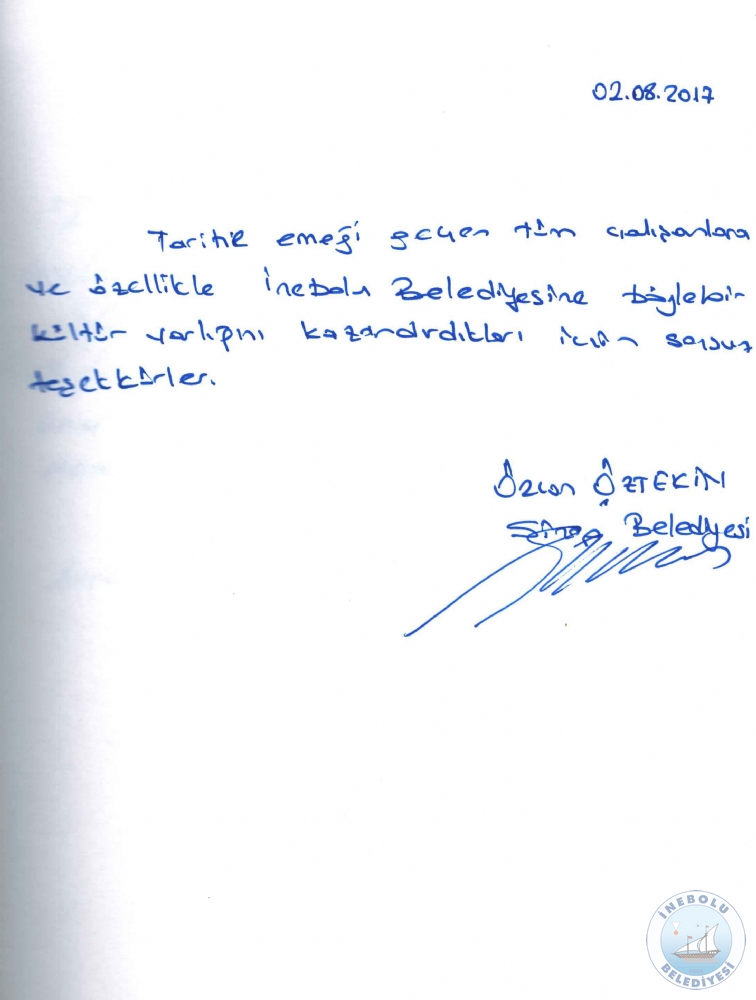 02.08.2017
Tarihe emeği geçen tüm çalışanlara
ve özellikle İnebolu Belediyesine böylebir
kültür varlığını kazandırdıkları için sonsuz
teşekkürler.
Özcan ÖZTEKİN
Belediyesi
İNEBOLU
BELEDİYESİ